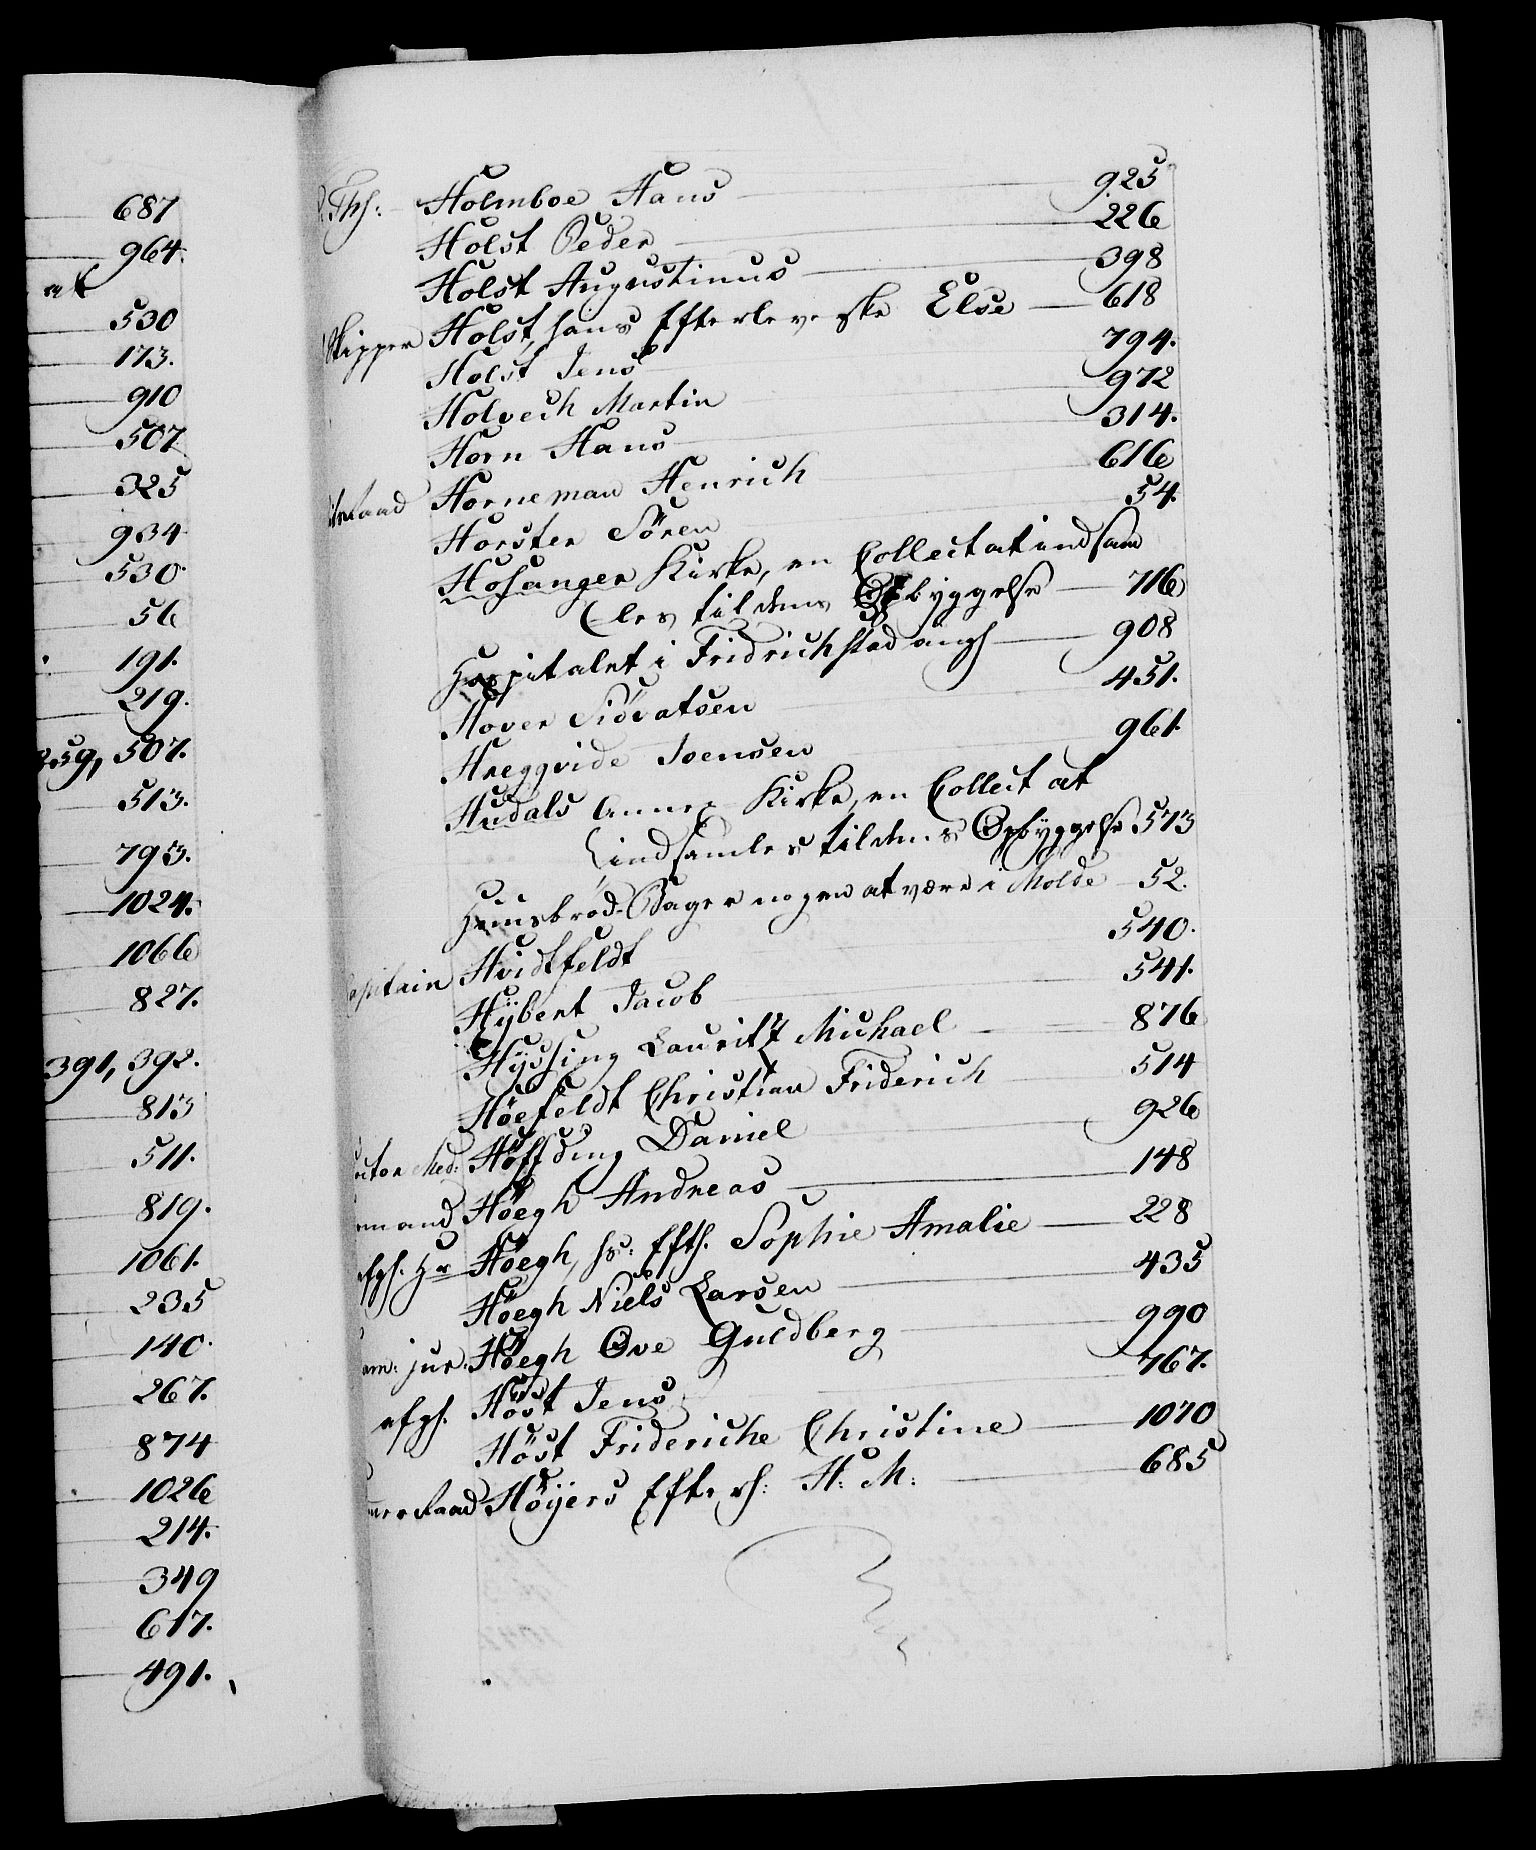 687
964.
at
530
173.
910
507
325
934
530.
56
191.
219.
359, 507.
513.
795.
1024.
1066
827.
391, 392.
813
511.
819.
1061.
235
140.
267.
874
1026
214.
349
617.
491.
Holmboe Hans 925
Holst Peder 226
Holst Augustinus 398
Skipper Holst, hans Efterleveske Else 618
Holst Jens 794.
Holveck Martin 972
Horn Hans 314.
Raad Horneman Henrich 616
Horster Sören 54.
Hosanger Kirke, en Collect at indsam
les til dens Opbyggelse 716
Hospitalet i Fridrichstad angh 908
Hover Siövatsen 451.
Hreggvide Joensen 961.
Hudals Annex Kirke, en Collect at
indsamles til dens Opbyggelse 573
Huusbröd-Bagere nogen at være i Molde 52.
Capitain Hvidtfeldt 540.
Hÿbert Jacob 541.
Hÿssing Lauritz Michael 876
Höefeldt Christian Friderich 514
Med: Höffding Daniel 926
Höegh Andreas 148
afgh. Hr Höegh, hs: Efth. Sophie Amalie 228
Höegh Niels Larsen 435
jur. Höegh Ove Guldberg 990
afgh. Höst Jens 767.
Höst Frideriche Christine 1070
Raad Höÿers Efterh: H: M: 685